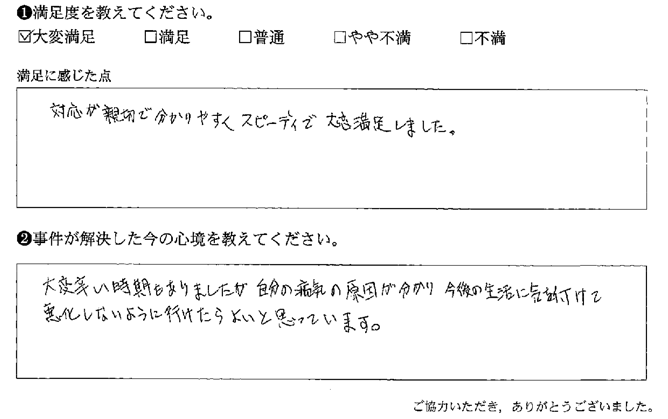 ❶満足度を教えてください。
☑大変満足 □満足 □普通 □やや不満 □不満
満足に感じた点
対応が親切で分かりやすく スピーディで 大変満足しました。
❷事件が解決した今の心境を教えてください。
大変辛い時期もありましたが 自分の病気の原因が分かり 今後の生活に気を付けて
悪化しないように行けたらよいと思っています。
ご協力いただき，ありがとうございました。